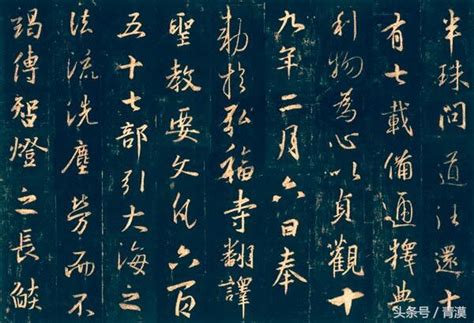 半珠問道往還十
有七載備通釋典
利物為心以貞觀十
九年二月六日奉
勅於弘福寺翻譯
聖教要文凡六百
五十七部引大海之
法流洗塵勞而不
竭傳智燈之長焰
头条号 / 青漠